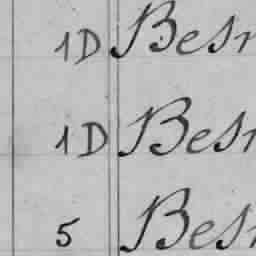 1D Besn
1D Besn
5 Besn